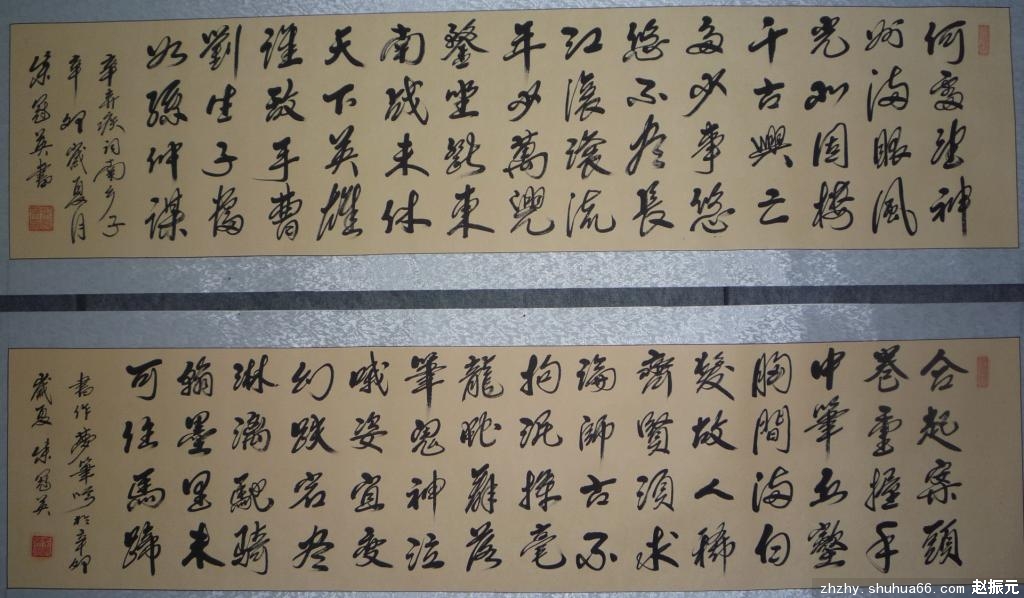 何處望神
州满眼風
光北固楼
千古興亡
多少事悠
悠不尽長
江滚滚流
年少萬兜
鍪坐斷東
南战未休
天下英雄
誰敌手曹
劉生子當
如孫仲謀
辛弃疾词南乡子
辛卯歲夏月
朱冠英書
合起案頭
卷重握手
中筆丘壑
胸間满白
髮故人稀
齊賢須求
論師古不
拘泥操毫
龍蛇舞落
筆鬼神泣
哦姿宜变
幻跌宕尽
淋漓馳骑
翰墨里未
可住馬蹄
書作夢筆吟於辛卯
歲夏 朱冠英
zhzhy.shuhua66.com 赵振元